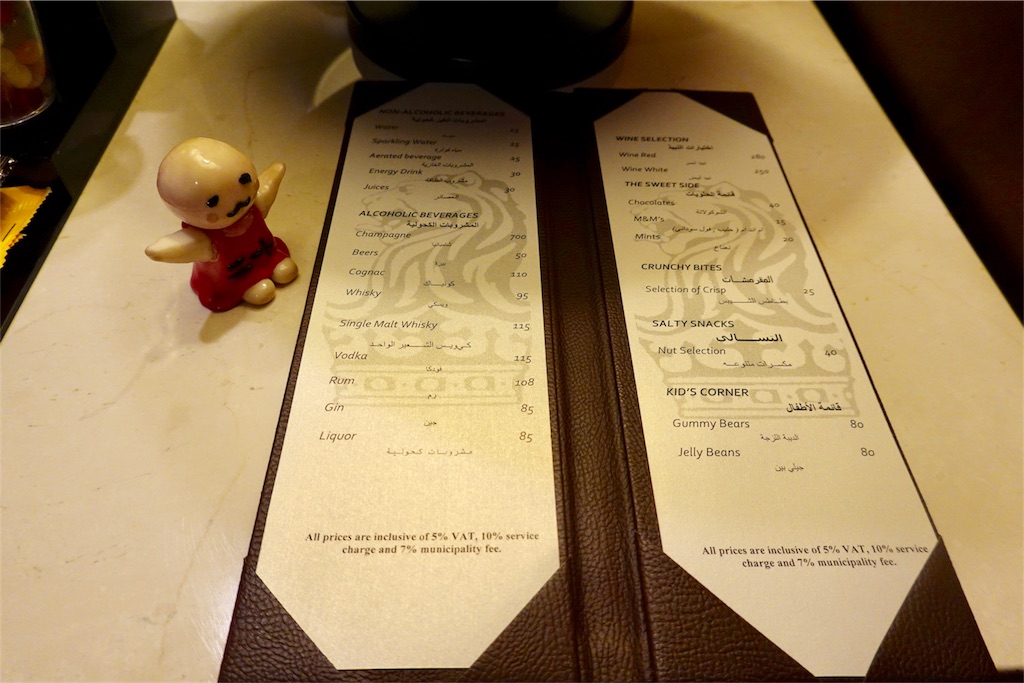 NON-ALCOHOLIC BEVERAGES
المشروبات الغير كحولية
Water
Sparkling Water 25
مياه فوارة
Aerated beverage 25
المشروبات الغازية
Energy Drink 30
مشروبات الطاقة
Juices 30
العصائر
ALCOHOLIC BEVERAGES
المشروبات الكحولية
Champagne 700
شمبانيا
Beers 50
بيرة
Cognac 110
كونياك
Whisky 95
ويسكي
Single Malt Whisky 115
Vodka 115
فودكا
Rum 108
رم
Gin 85
جين
Liquor 85
مشروبات كحولية
All prices are inclusive of 5% VAT, 10% service
charge and 7% municipality fee.
WINE SELECTION
Wine Red 280
نبيذ أحمر
Wine White 250
نبيذ أبيض
THE SWEET SIDE
قائمة الحلويات
Chocolates 40
الشوكولاتة
M&M's 25
Mints 20
نعناع
CRUNCHY BITES
المقرمشات
Selection of Crisp 25
بطاطس الشيبس
SALTY SNACKS
Nut Selection 40
مكسرات متنوعه
KID'S CORNER
قائمة الأطفال
Gummy Bears 80
الدببة اللزجة
Jelly Beans 80
جيلي بين
All prices are inclusive of 5% VAT, 10% service
charge and 7% municipality fee.